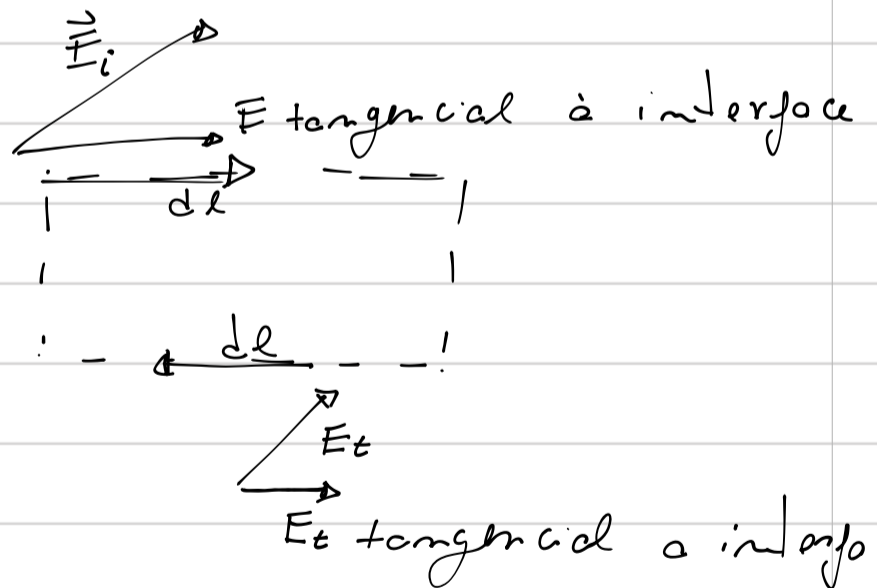 E⃗i
E tangencial à interface
dl
dl
Et
Et tangencial a